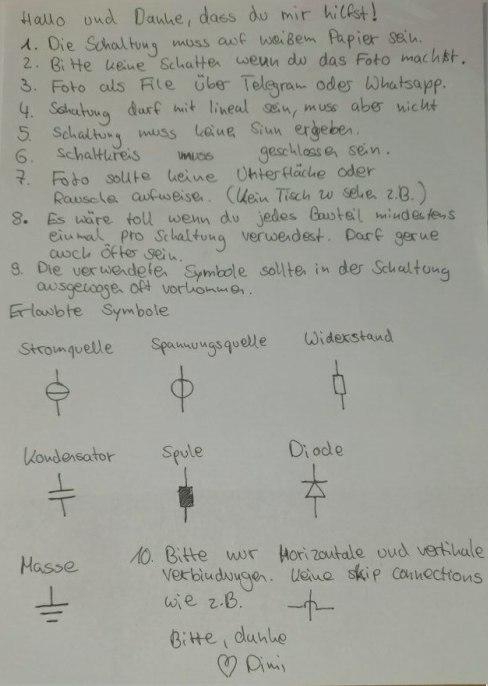 Hallo und Danke, dass du mir hilfst!
1. Die Schaltung muss auf weißem Papier sein.
2. Bitte keine Schatten wenn du das Foto machst.
3. Foto als File über Telegram oder Whatsapp.
4. Schatung darf mit lineal sein, muss aber nicht
5. Schaltung muss keine Sinn ergeben.
6. Schaltkreis muss geschlossen sein.
7. Foto sollte keine Unterfläche oder
Rauschen aufweisen. (Kein Tisch zu sehen z.B.)
8. Es wäre toll wenn du jedes Bauteil mindestens
einmal pro Schaltung verwendest. Darf gerne
auch öfter sein.
9. Die verwendeten Symbole sollten in der Schaltung
ausgewogen oft vorkommen.
Erlaubte Symbole
Stromquelle Spannungsquelle Widerstand
Kondensator Spule Diode
Masse
10. Bitte nur Horizontale und vertikale
Verbindungen. Keine skip connections
wie z.B.
Bitte, danke
♡ Dimi